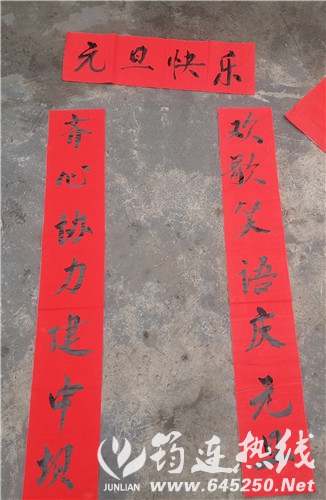 元旦快乐
欢歌笑语庆元旦
齐心协力建中坝
筠连热线
JUNLIAN
www.645250.Net